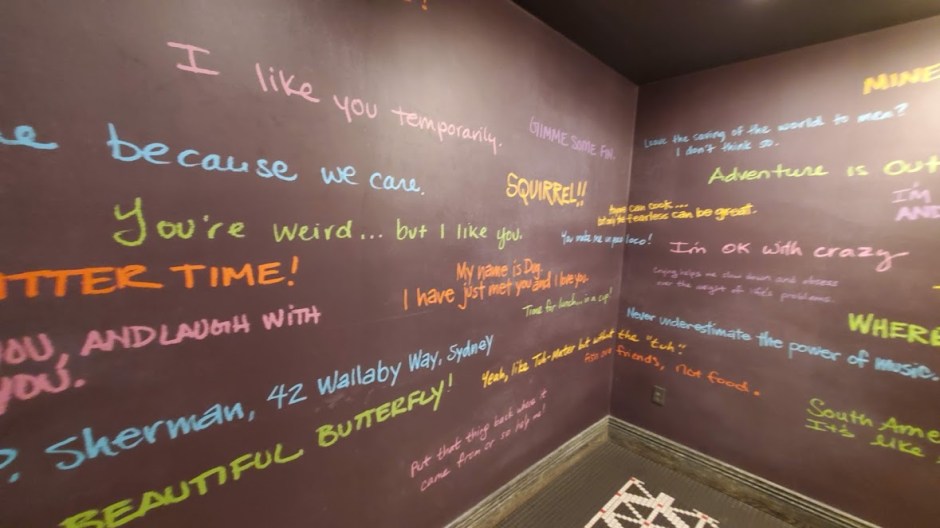 I like you temporarily.
because we care.
GIMME SOME FIN.
SQUIRREL!!
You're weird... but I like you.
TTER TIME!
My name is Dug.
I have just met you and I love you.
Time for lunch... in a cup!
YOU, AND LAUGH WITH
YOU.
P. Sherman, 42 Wallaby Way, Sydney
BEAUTIFUL BUTTERFLY!
Yeah, like Tuh-Mater but without the "tuh".
Put that thing back where it
came from or so help me!
MINE
Leave the saving of the world to men?
I don't think so.
Adventure is Out
Anyone can cook...
but only the fearless can be great.
I'M
AND
You make me un poco loco!
I'm OK with crazy
Crying helps me slow down and obsess
over the weight of life's problems.
Never underestimate the power of music.
WHERE
Fish are friends, not food.
South Ame
It's like